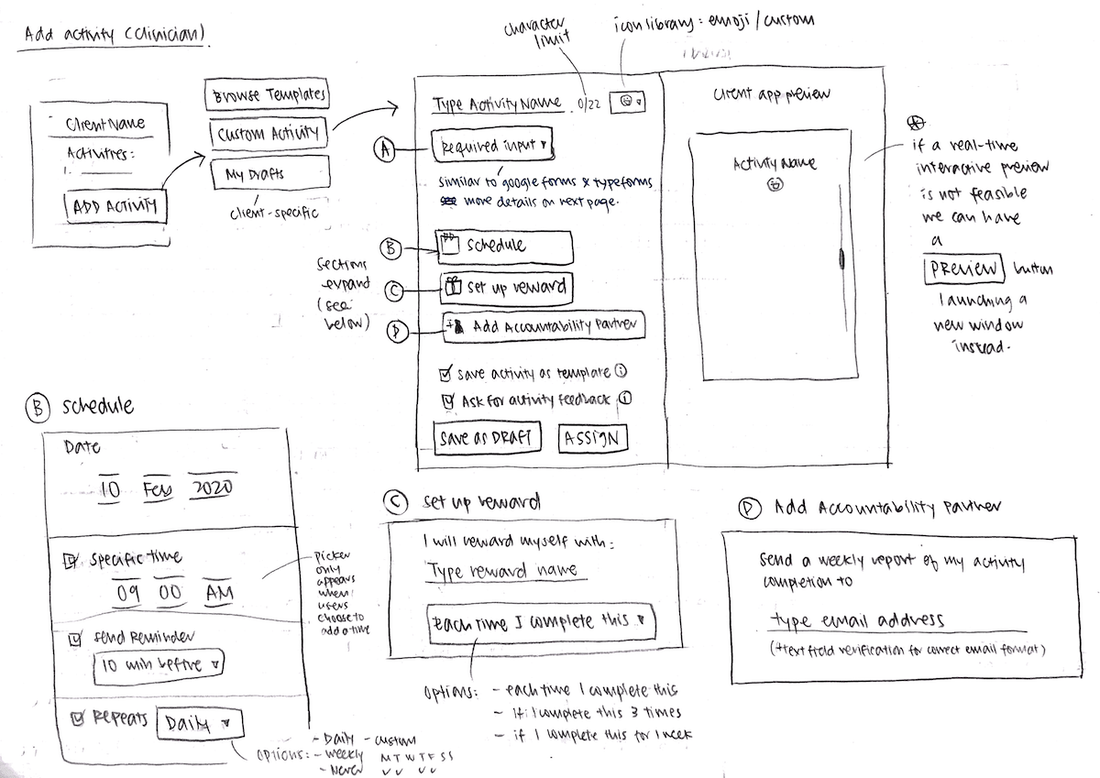 Add activity (clinician)
Client Name
Activities:
1.
ADD ACTIVITY
Browse Templates
Custom Activity
My Drafts
client-specific
character
limit
icon library: emoji / custom
Type Activity Name 0/22
A
Required input
Similar to google forms & typeforms
see more details on next page.
sections
expand
(see
below)
B
schedule
C
set up reward
D
+ Add Accountability Partner
save activity as template i
Ask for activity feedback i
SAVE AS DRAFT
ASSIGN
Client app preview
Activity Name
if a real-time
interactive preview
is not feasible
we can have
a
PREVIEW button
launching a
new window
instead.
B schedule
Date
10 Feb 2020
specific time
09 00 AM
picker
only
appears
when
users
choose to
add a time
send reminder
10 min before
Repeats Daily
options: - Daily - custom
- weekly M T W T F S S
- Never v v v v
C set up reward
I will reward myself with:
Type reward name
Each time I complete this
options: - each time I complete this
- If I complete this 3 times
- if I complete this for 1 week
D Add Accountability Partner
send a weekly report of my activity
completion to
type email address
(+text field verification for correct email format)